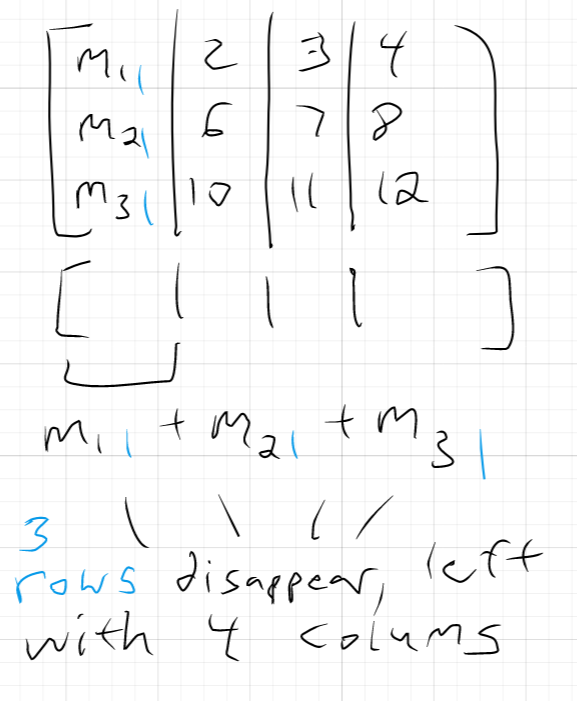 m₁₁ | 2 | 3 | 4
m₂₁ | 6 | 7 | 8
m₃₁ | 10 | 11 | 12
[ | | | ]
m₁₁ + m₂₁ + m₃₁
3
rows disappear, left
with 4 colums